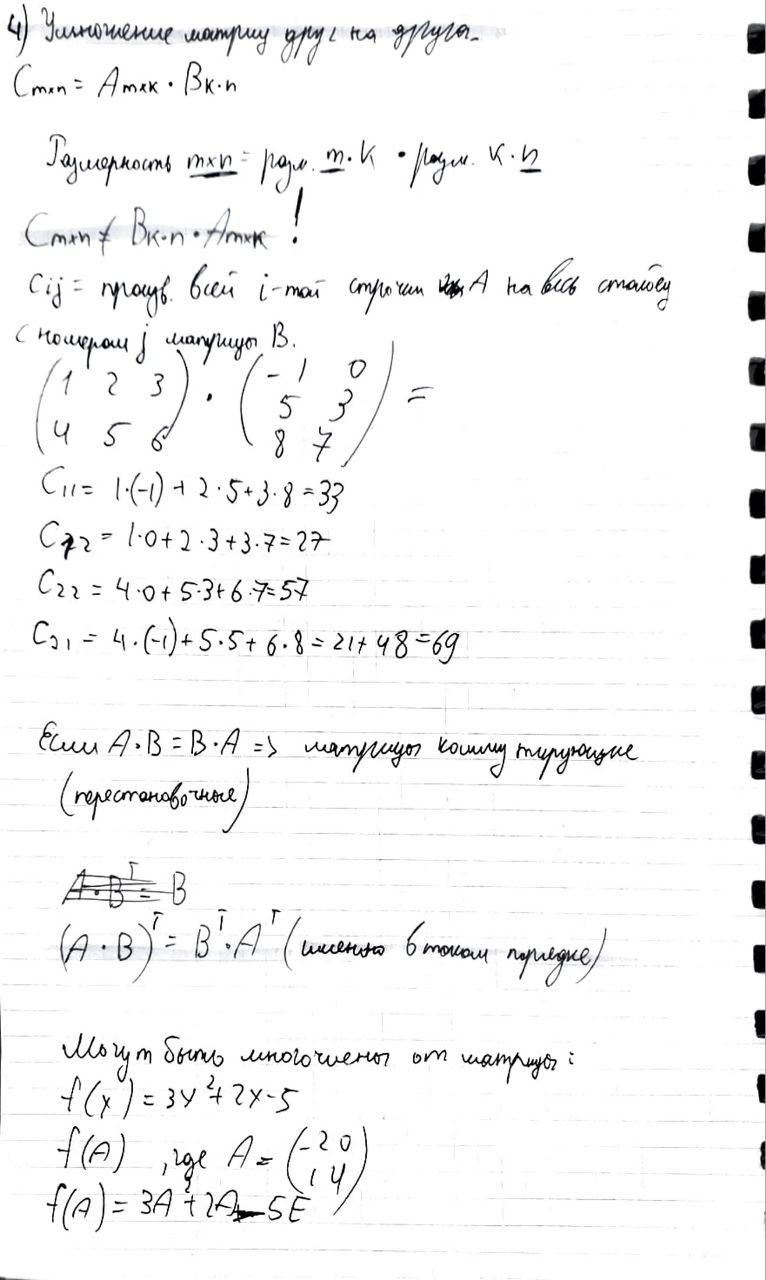 4) Умножение матриц друг на друга.
Cm×n = Am×k · Bk·n
Размерность m×n = разм. m·k · разм. k·n
Cm×n ≠ Bk·n · Am×k !
Cij = произв. всей i-той строчки A на весь столбец
с номером j матрицы B.
(1 2 3) · (-1 0) =
(4 5 6) (5 3)
(8 7)
C11 = 1·(-1) + 2·5 + 3·8 = 33
C12 = 1·0 + 2·3 + 3·7 = 27
C22 = 4·0 + 5·3 + 6·7 = 57
C21 = 4·(-1) + 5·5 + 6·8 = 21 + 48 = 69
Если A·B = B·A => матрицы коммутирующие
(перестановочные)
A·Bᵀ = B
(A·B)ᵀ = Bᵀ·Aᵀ (именно в таком порядке)
Могут быть многочлены от матрицы:
f(x) = 3x² + 2x - 5
f(A) , где A = (-2 0)
(1 4)
f(A) = 3A² + 2A - 5E